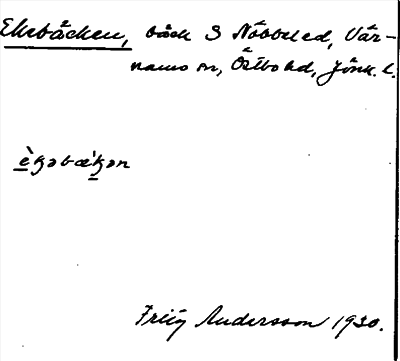 Ekebäcken, bäck S Nöbbeled, Vär-
namo sn, Östbo hd, Jönk. l.
èkəbækən
Frig Andersson 1930.